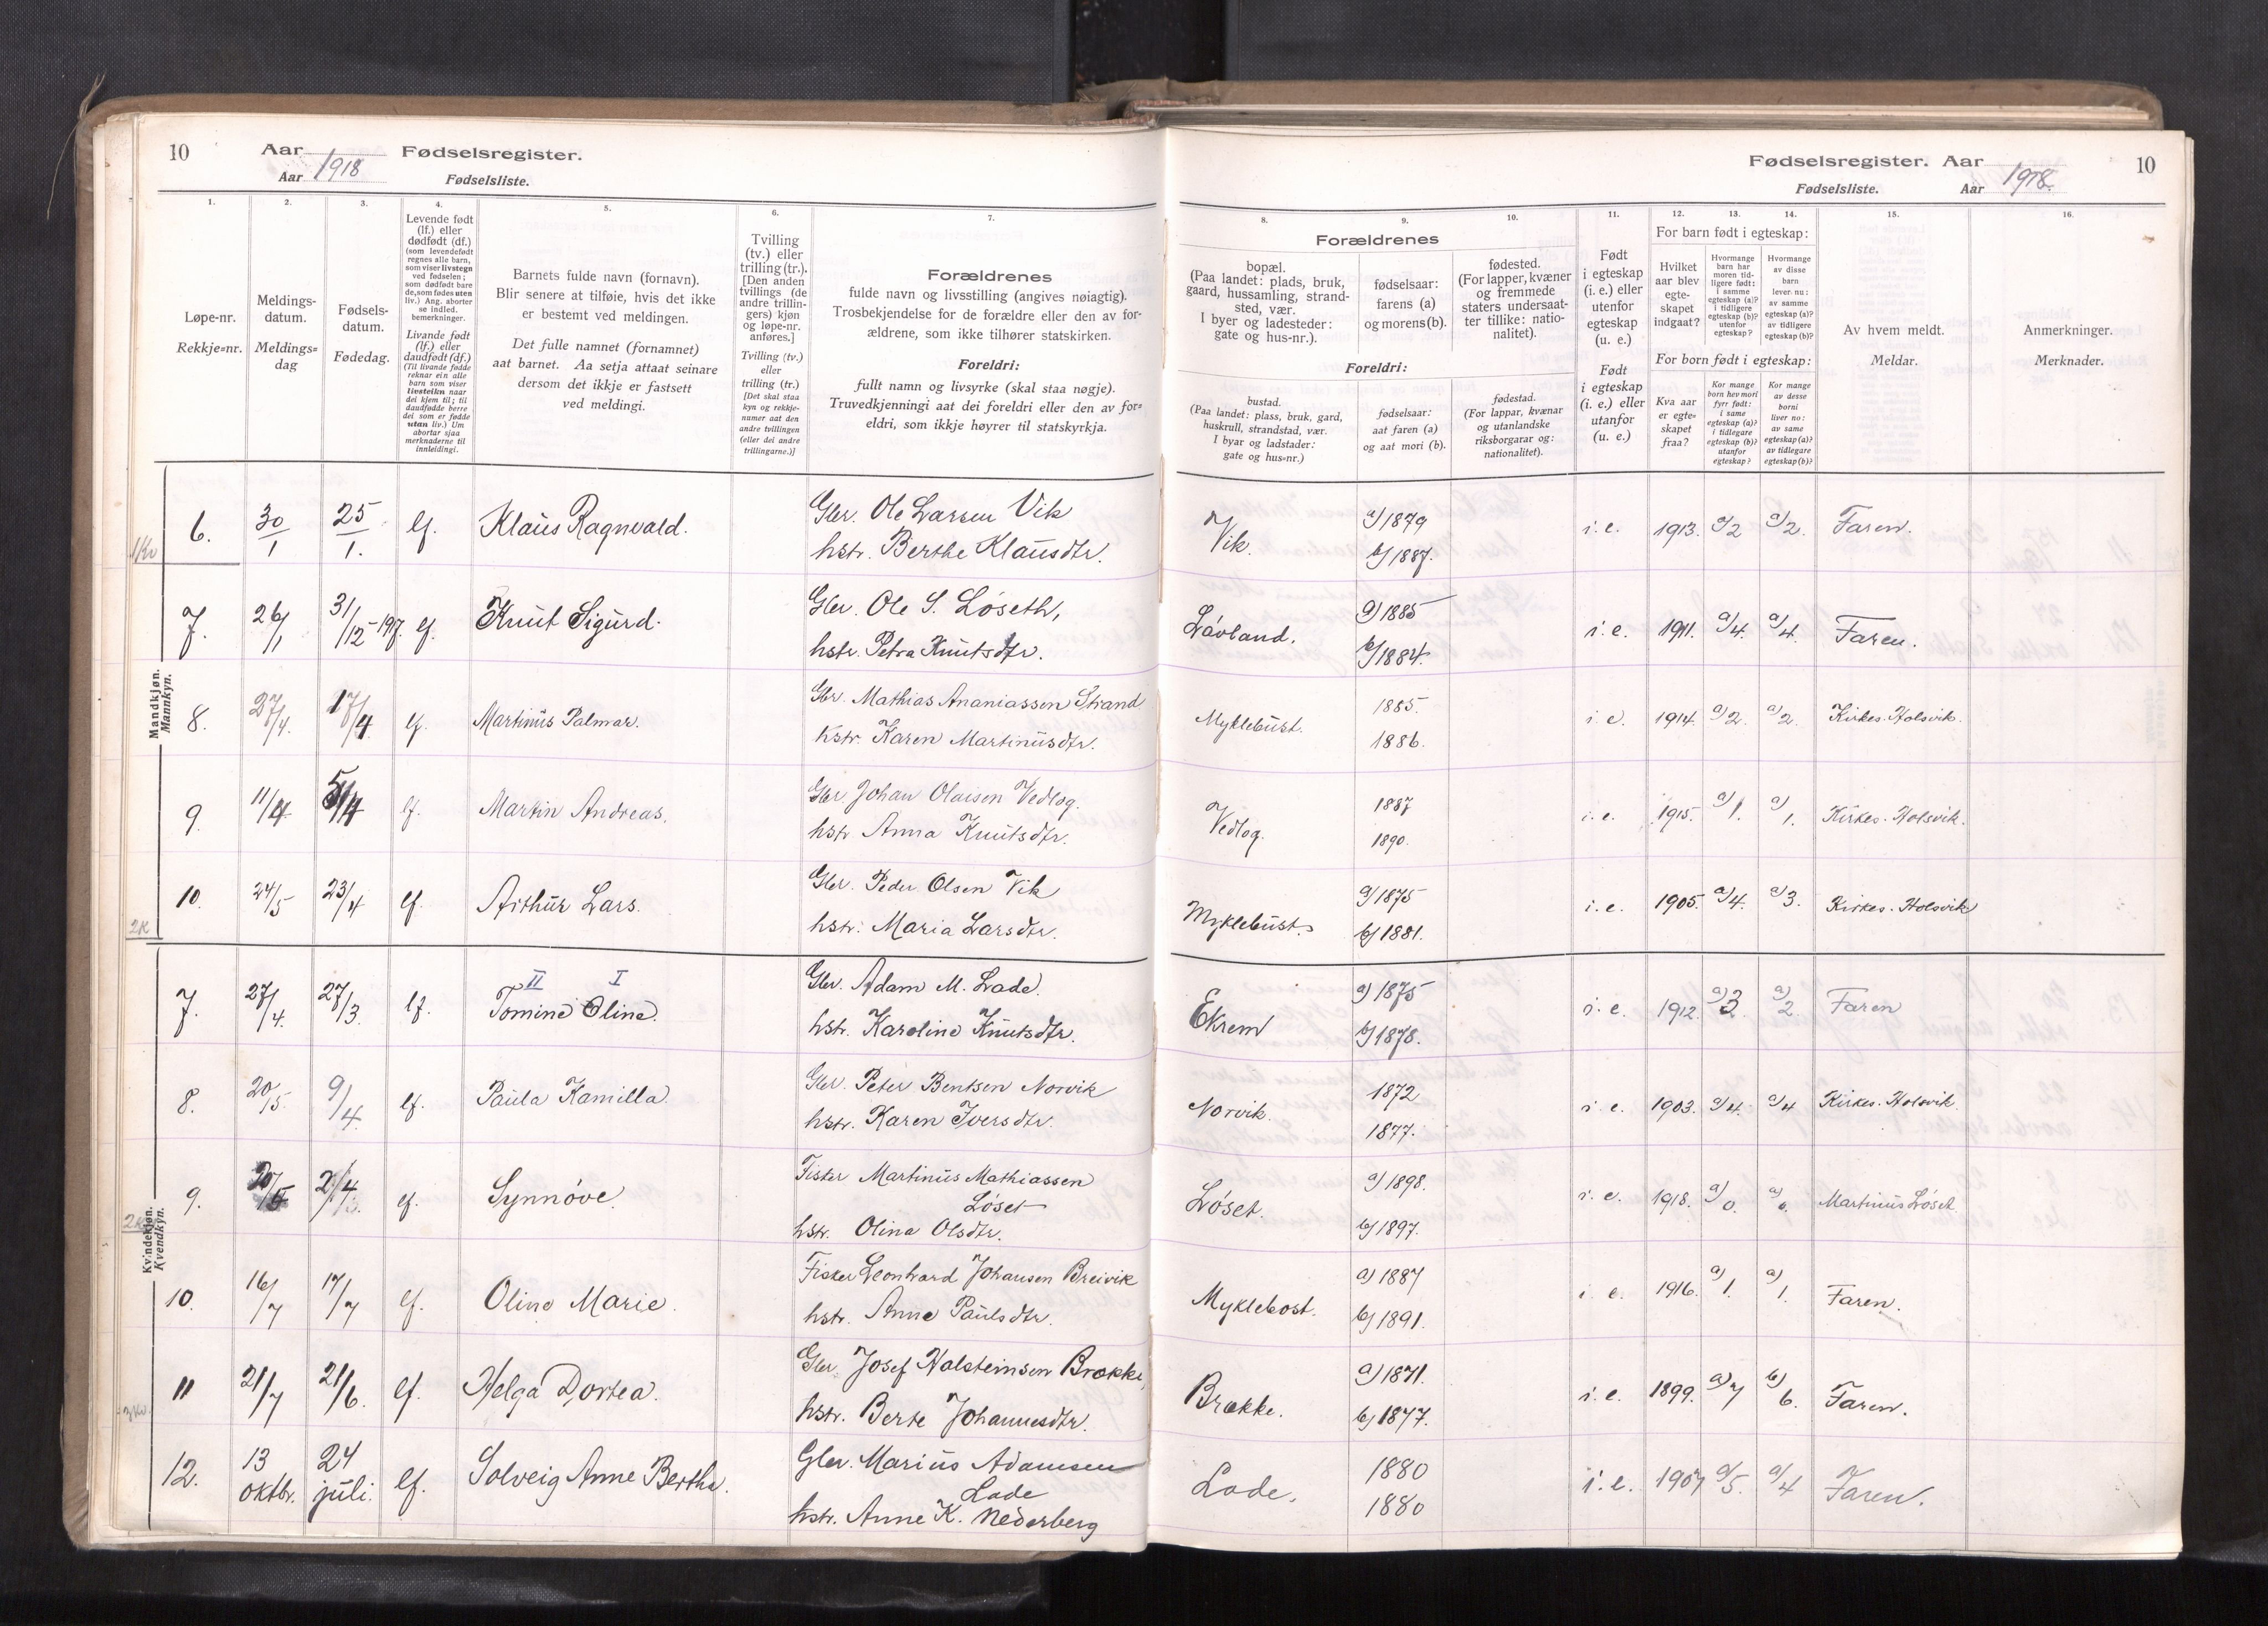 10 Aar Fødselsregister.
Aar 1918 Fødselsliste.
Fødselsregister. Aar 10
Fødselsliste. Aar 1918.
1.
Løpe-nr.
Rekkje=nr.
2.
Meldings-
datum.
Meldings=
dag
3.
Fødsels-
datum.
Fødedag.
4.
Levende født
(lf.) eller
dødfødt (df.)
(som levendefødt
regnes alle barn,
som viser livstegn
ved fødselen;
som dødfødt bare
de, som fødes uten
liv.) Ang. aborter
se indled.
bemerkninger.
Livande født
(lf.) eller
daudfødt (df.)
(Til livande fødde
reknar ein alle
born som viser
livsteikn naar
dei kjem til; til
daudfødde berre
dei som er fødde
utan liv.) Um
abortar sjaa
merknaderne til
innleidingi.
5.
Barnets fulde navn (fornavn).
Blir senere at tilføie, hvis det ikke
er bestemt ved meldingen.
Det fulle namnet (fornamnet)
aat barnet. Aa setja attaat seinare
dersom det ikkje er fastsett
ved meldingi.
6.
Tvilling
(tv.) eller
trilling (tr.).
[Den anden
tvillings (de
andre trillin-
gers) kjøn
og løpe-nr.
anføres.]
Tvilling (tv.)
eller
trilling (tr.)
[Det skal staa
kyn og rekkje-
numer aat den
andre tvillingen
(eller dei andre
trillingarne.)]
7.
Forældrenes
fulde navn og livsstilling (angives nøiagtig).
Trosbekjendelse for de forældre eller den av for-
ældrene, som ikke tilhører statskirken.
Foreldri:
fullt namn og livsyrke (skal staa nøgje).
Truvedkjenningi aat dei foreldri eller den av for=
eldri, som ikkje høyrer til statskyrkja.
Forældrenes
8.
bopæl.
(Paa landet: plads, bruk,
gaard, hussamling, strand-
sted, vær.
I byer og ladesteder:
gate og hus-nr.).
9.
fødselsaar:
farens (a)
og morens (b).
10.
fødested.
(For lapper, kvæner
og fremmede
staters undersaat-
ter tillike: natio-
nalitet).
Foreldri:
bustad.
(Paa landet: plass, bruk, gard,
huskrull, strandstad, vær.
I byar og ladstader:
gate og hus=nr.)
fødselsaar:
aat faren (a)
og aat mori (b).
fødestad.
(For lappar, kvænar
og utanlandske
riksborgarar og:
nationalitet).
11.
Født
i egteskap
(i. e.) eller
utenfor
egteskap
(u. e.)
Født
i egteskap
(i. e.) eller
utanfor
(u. e.)
12. 13. 14.
For barn født i egteskap:
Hvilket
aar blev
egte-
skapet
indgaat?
Hvormange
barn har
moren tid-
ligere født:
i samme
egteskap (a)?
i tidligere
egteskap (b)?
utenfor
egteskap?
Hvormange
av disse
barn
lever nu:
av samme
egteskap (a)?
av tidligere
egteskap (b)?
For born født i egteskap:
Kva aar
er egte=
skapet
fraa?
Kor mange
born hev mori
fyrr født:
i same
egteskap (a)?
i tidlegare
egteskap (b)?
utanfor
egteskap?
Kor mange
av desse
borni
liver no:
av same
egteskap (a)?
av tidlegare
egteskap (b)?
15.
Av hvem meldt.
Meldar.
16.
Anmerkninger.
Merknader.
Mandkjøn.
Mannkyn.
6. 30/1 25/1. lf. Klaus Ragnvald. Gbr. Ole Larsen Vik Vik. a) 1879 i. e. 1913. a) 2 a) 2. Faren.
hstr. Berthe Klausdtr. b) 1887.
7. 26/1 31/12-1917. lf. Knut Sigurd. Gbr. Ole S. Løseth, Løvland. a) 1885 i. e. 1911. a) 4. a) 4. Faren.
hstr. Petra Knutsdtr. b) 1884.
8. 27/4. 17/4 lf. Martinus Palmar. Gbr. Mathias Ananiassen Strand Myklebust. 1885. i. e. 1914. a) 2. a) 2. Kirkes. Holsvik.
hstr. Karen Martinusdtr. 1886.
9. 11/4 5/4 lf. Martin Andreas. Gbr Johan Olaisen Vedlog. Vedlog. 1887 i. e. 1915. a) 1. a) 1. Kirkes. Holsvik.
hstr Anna Knutsdtr. 1890.
10. 24/5 23/4 lf. Arthur Lars. Gbr. Peder Olsen Vik Myklebust. a) 1875 i. e. 1905. a) 4. a) 3. Kirkes. Holsvik
2K hstr. Maria Larsdtr. b) 1881.
Kvindekjøn.
Kvendkyn.
II I
7. 27/4. 27/3. lf. Tomine Oline. Gbr. Adam M. Lade. Ekrem a) 1875 i. e. 1912. a) 3. a) 2. Faren
hstr. Karoline Knutsdtr. b) 1878.
8. 20/5. 9/4 lf. Paula Kamilla. Gbr. Peter Bentsen Norvik Norvik. 1872 i. e. 1903. a) 4. a) 4 Kirkes. Holsvik
hstr. Karen Iversdtr. 1877.
9. 20/5 2/4 lf. Synnøve. Fisker Martinus Mathiassen Løset. a) 1898. i. e. 1918. a) 0. a) 0. Martinus Løset
Løset
hstr. Olina Olsdtr. b) 1897.
10. 16/7 17/7 lf. Oline Marie. Fisker Leonhard Johansen Breivik Myklebost. a) 1887 i. e. 1916. a) 1. a) 1. Faren.
hstr. Anne Paulsdtr. b) 1891.
11 21/7 21/6. lf. Helga Dortea. Gbr. Josef Halsteinsen Brække, Brække. a) 1871. i. e. 1899. a) 7 b) 6. Faren.
hstr. Berte Johannesdtr. b) 1877.
12. 13 oktbr. 24 juli. lf. Solveig Anne Berthe. Gbr. Marius Adamsen Lade. 1880 i. e. 1907 a) 5. a) 4 Faren.
Lade
hstr. Anne K. Nederberg 1880